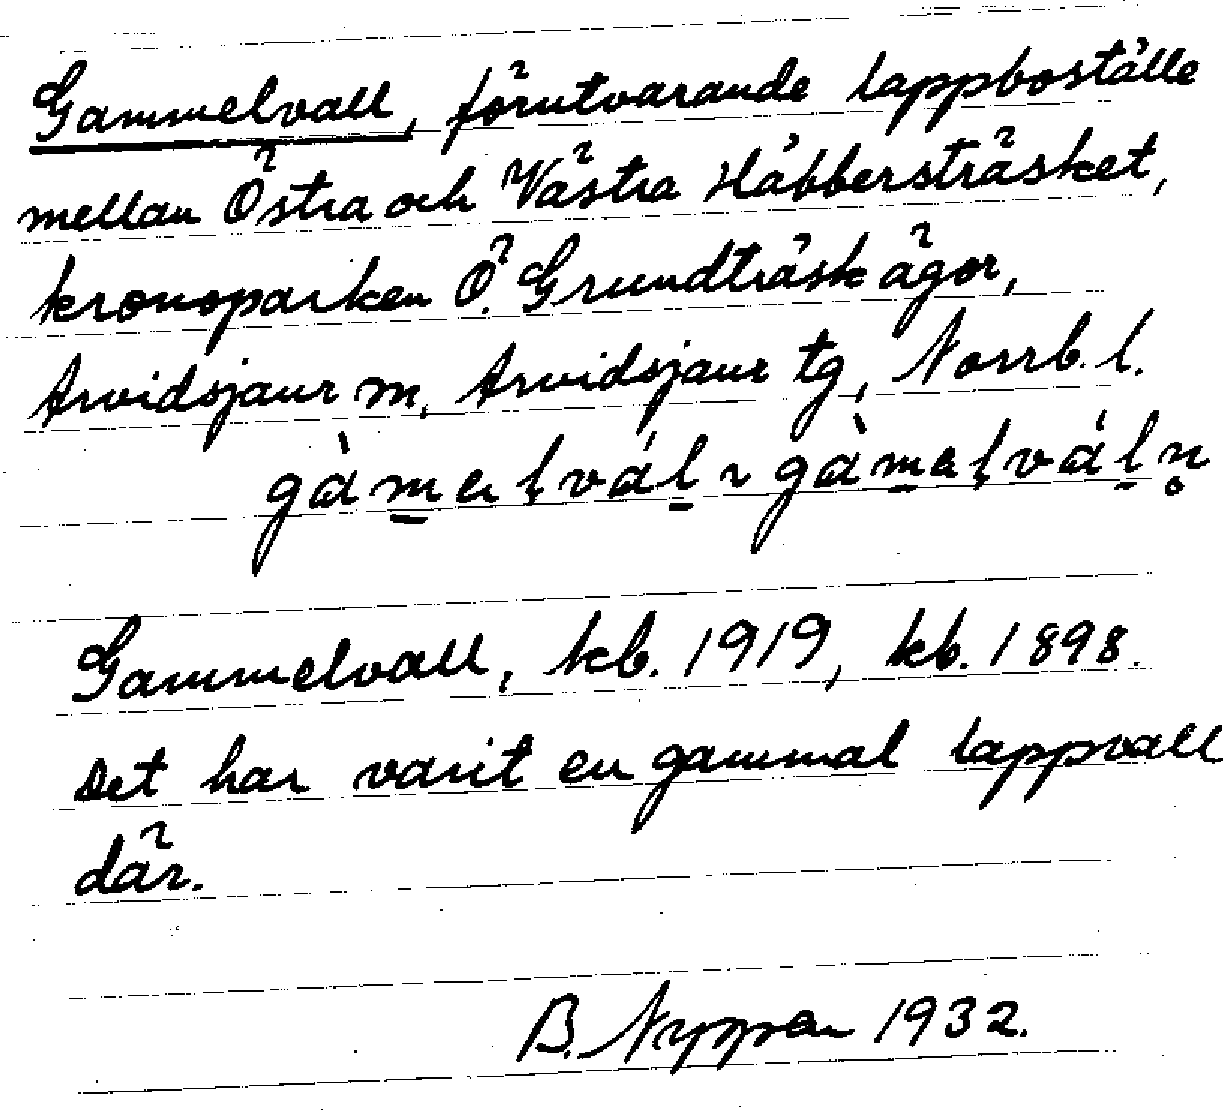 Gammelvall, förutvarande lappboställe
mellan Östra och Västra Håbbersträsket,
kronoparken Ö. Grundträsk ägor,
Arvidsjaur sn, Arvidsjaur tg, Norrb. l.
gàm̲elvál̲ ~ gàm̲elvál̲n̥
Gammelvall, kb. 1919, kb. 1898.
Det har varit en gammal lappvall
där.
B. Nyppan 1932.